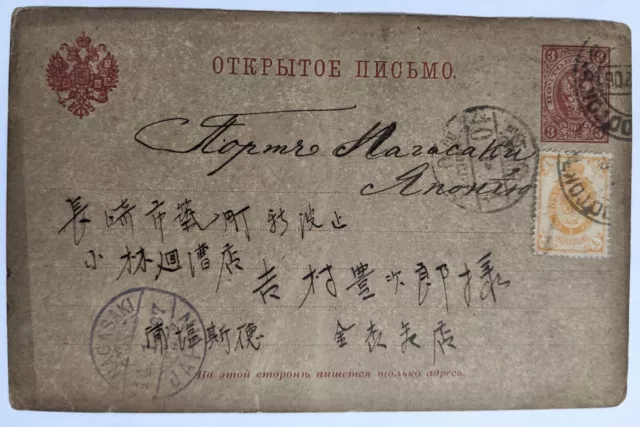 ОТКРЫТОЕ ПИСЬМО.
3
3
3
3
Портъ Нагасаки
Японію
長崎市 町新波止
小林廻漕店
吉村豊次郎様
浦塩斯德
店
NAGASAKI
JAPAN
На этой сторонѣ пишется только адресъ.